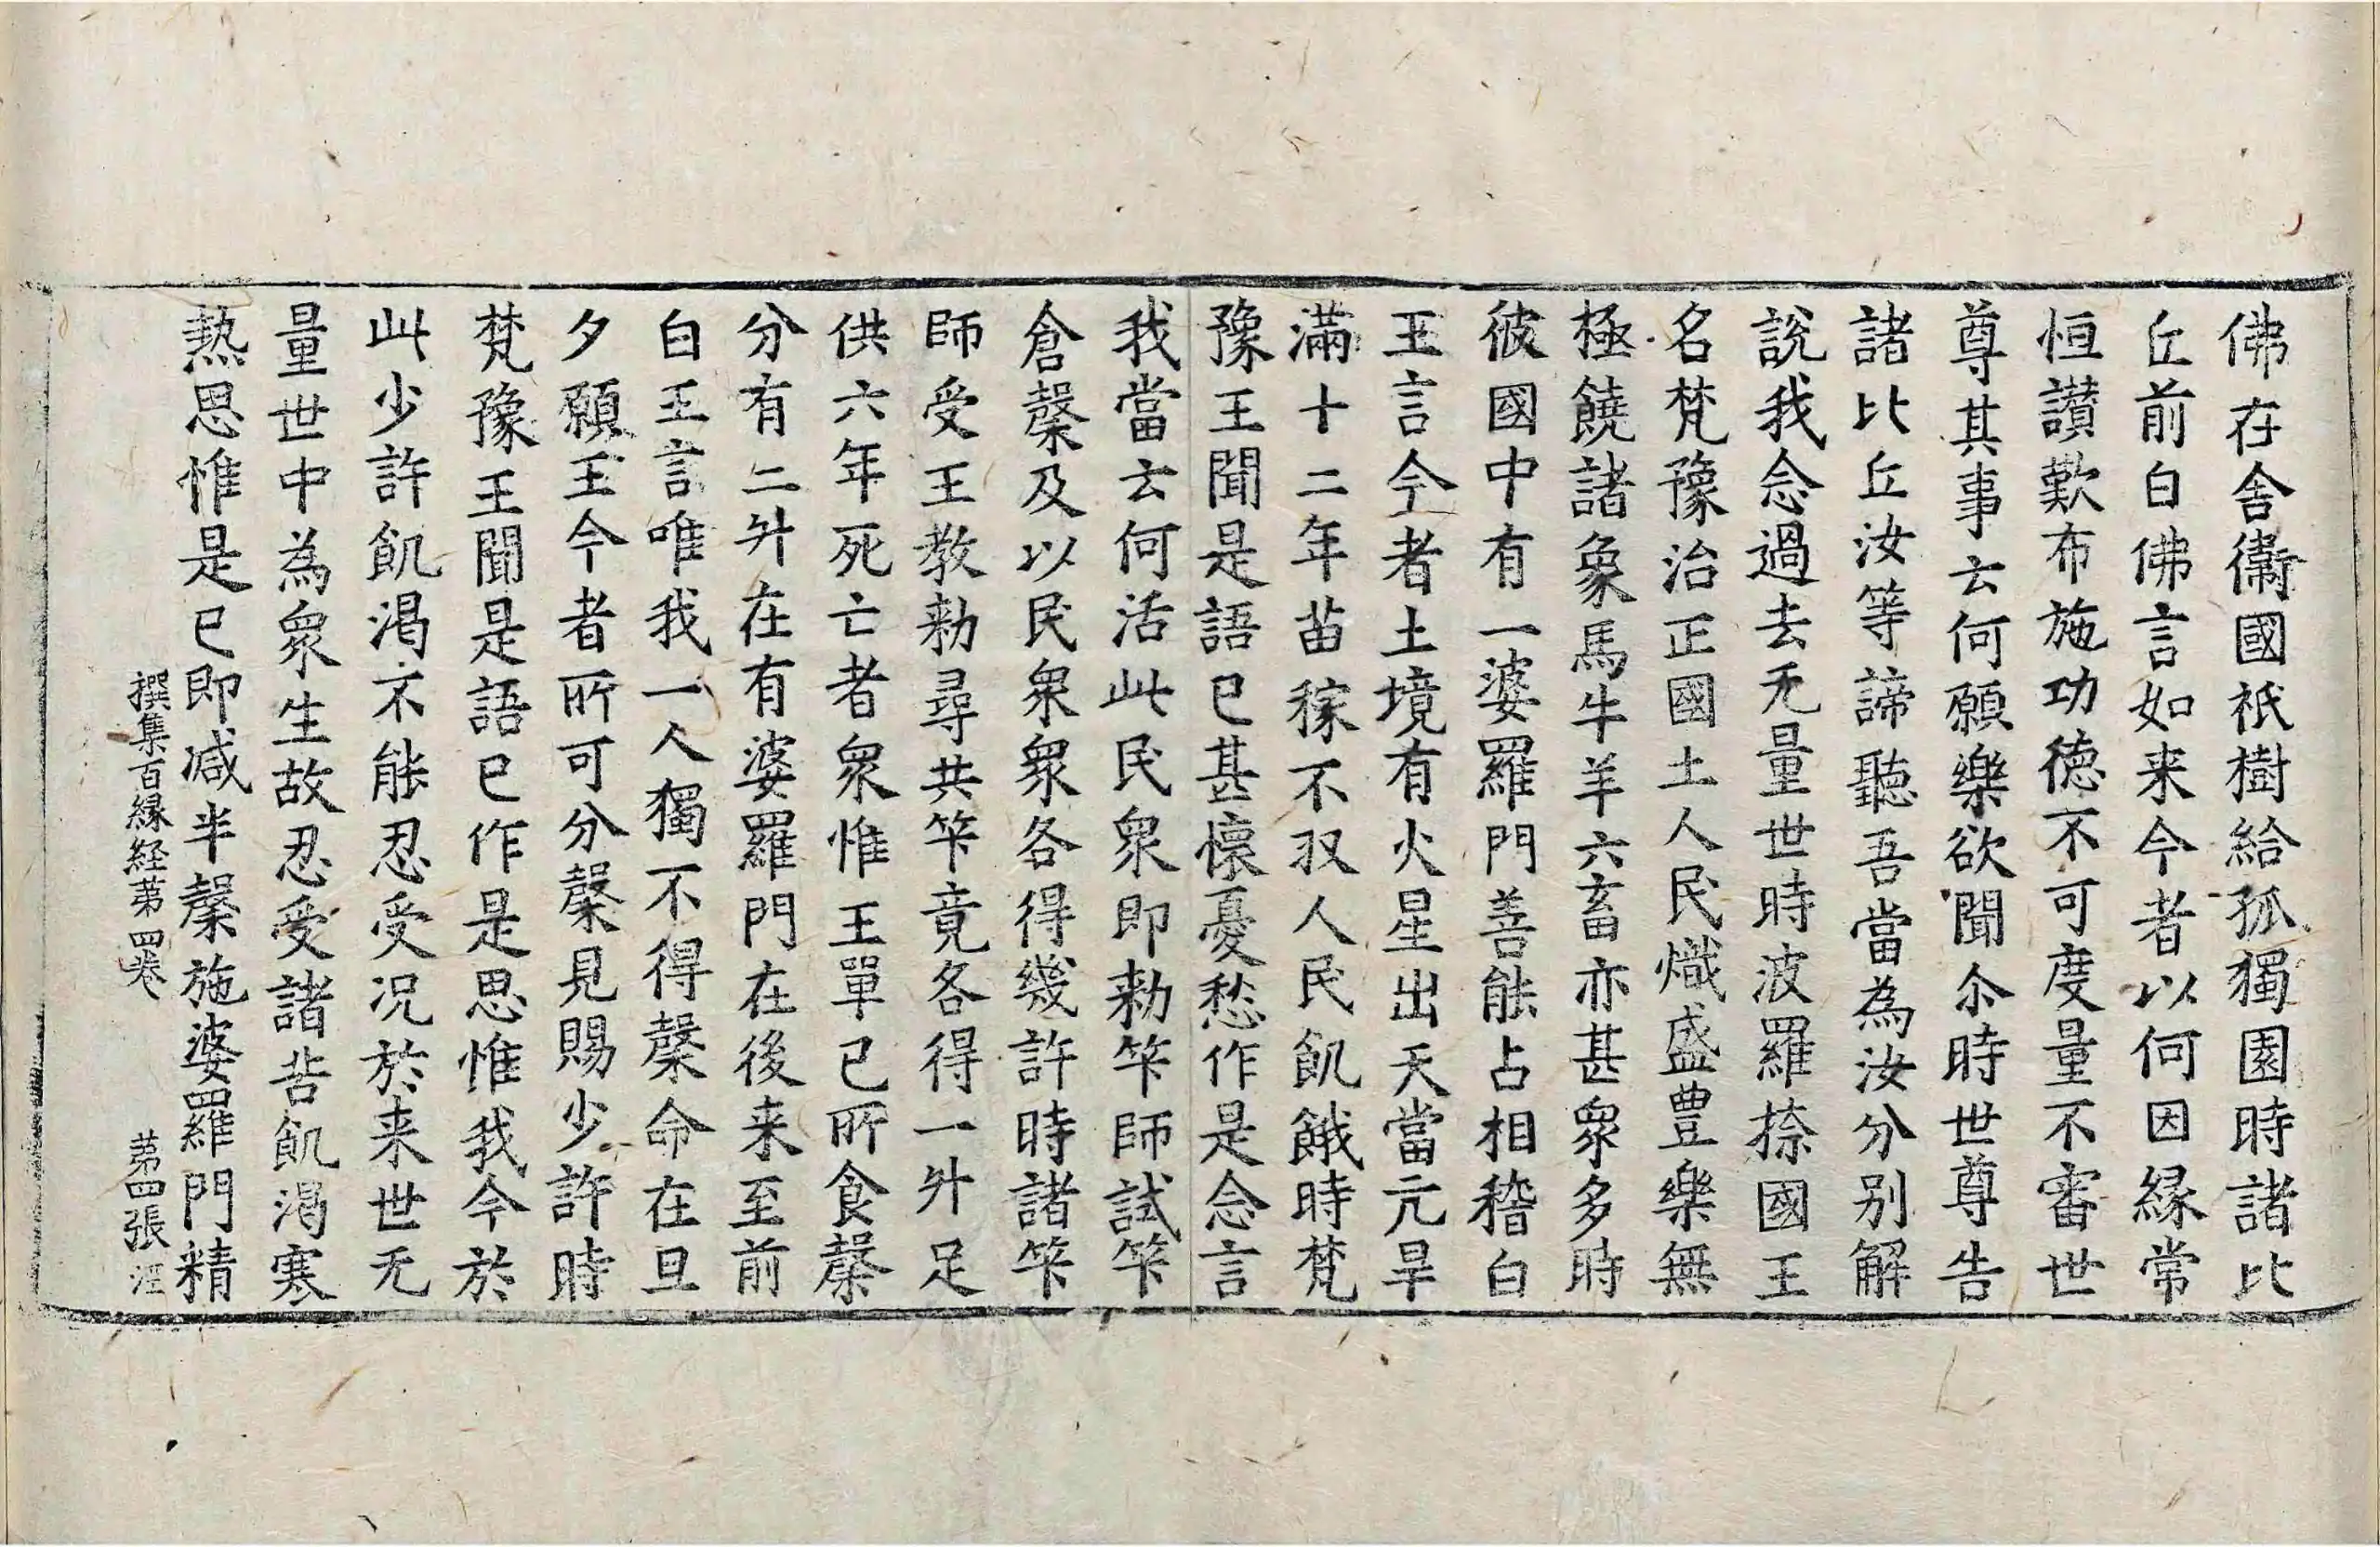 佛在舍衞國祇樹給孤獨園時諸比
丘前白佛言如来今者以何因縁常
恒讃歎布施功德不可度量不審世
尊其事云何願樂欲聞尒時世尊告
諸比丘汝等諦聽吾當為汝分別解
說我念過去无量世時波羅㮈國王
名梵豫治正國土人民熾盛豊樂無
極饒諸象馬牛羊六畜亦甚衆多時
彼國中有一婆羅門善能占相稽白
王言今者土境有火星出天當亢旱
滿十二年苗稼不収人民飢餓時梵
豫王聞是語已甚懷憂愁作是念言
我當云何活此民衆即勑筭師試筭
倉糓及以民衆衆各得幾許時諸筭
師受王教勑尋共筭竟各得一升足
供六年死亡者衆惟王單已所食糓
分有二升在有婆羅門在後来至前
白王言唯我一人獨不得糓命在旦
夕願王今者所可分糓見賜少許時
梵豫王聞是語已作是思惟我今於
此少許飢渴不能忍受况於来世无
量世中為衆生故忍受諸苦飢渴寒
熱思惟是已即減半糓施婆羅門精
撰集百縁経苐四卷 苐四張 涇